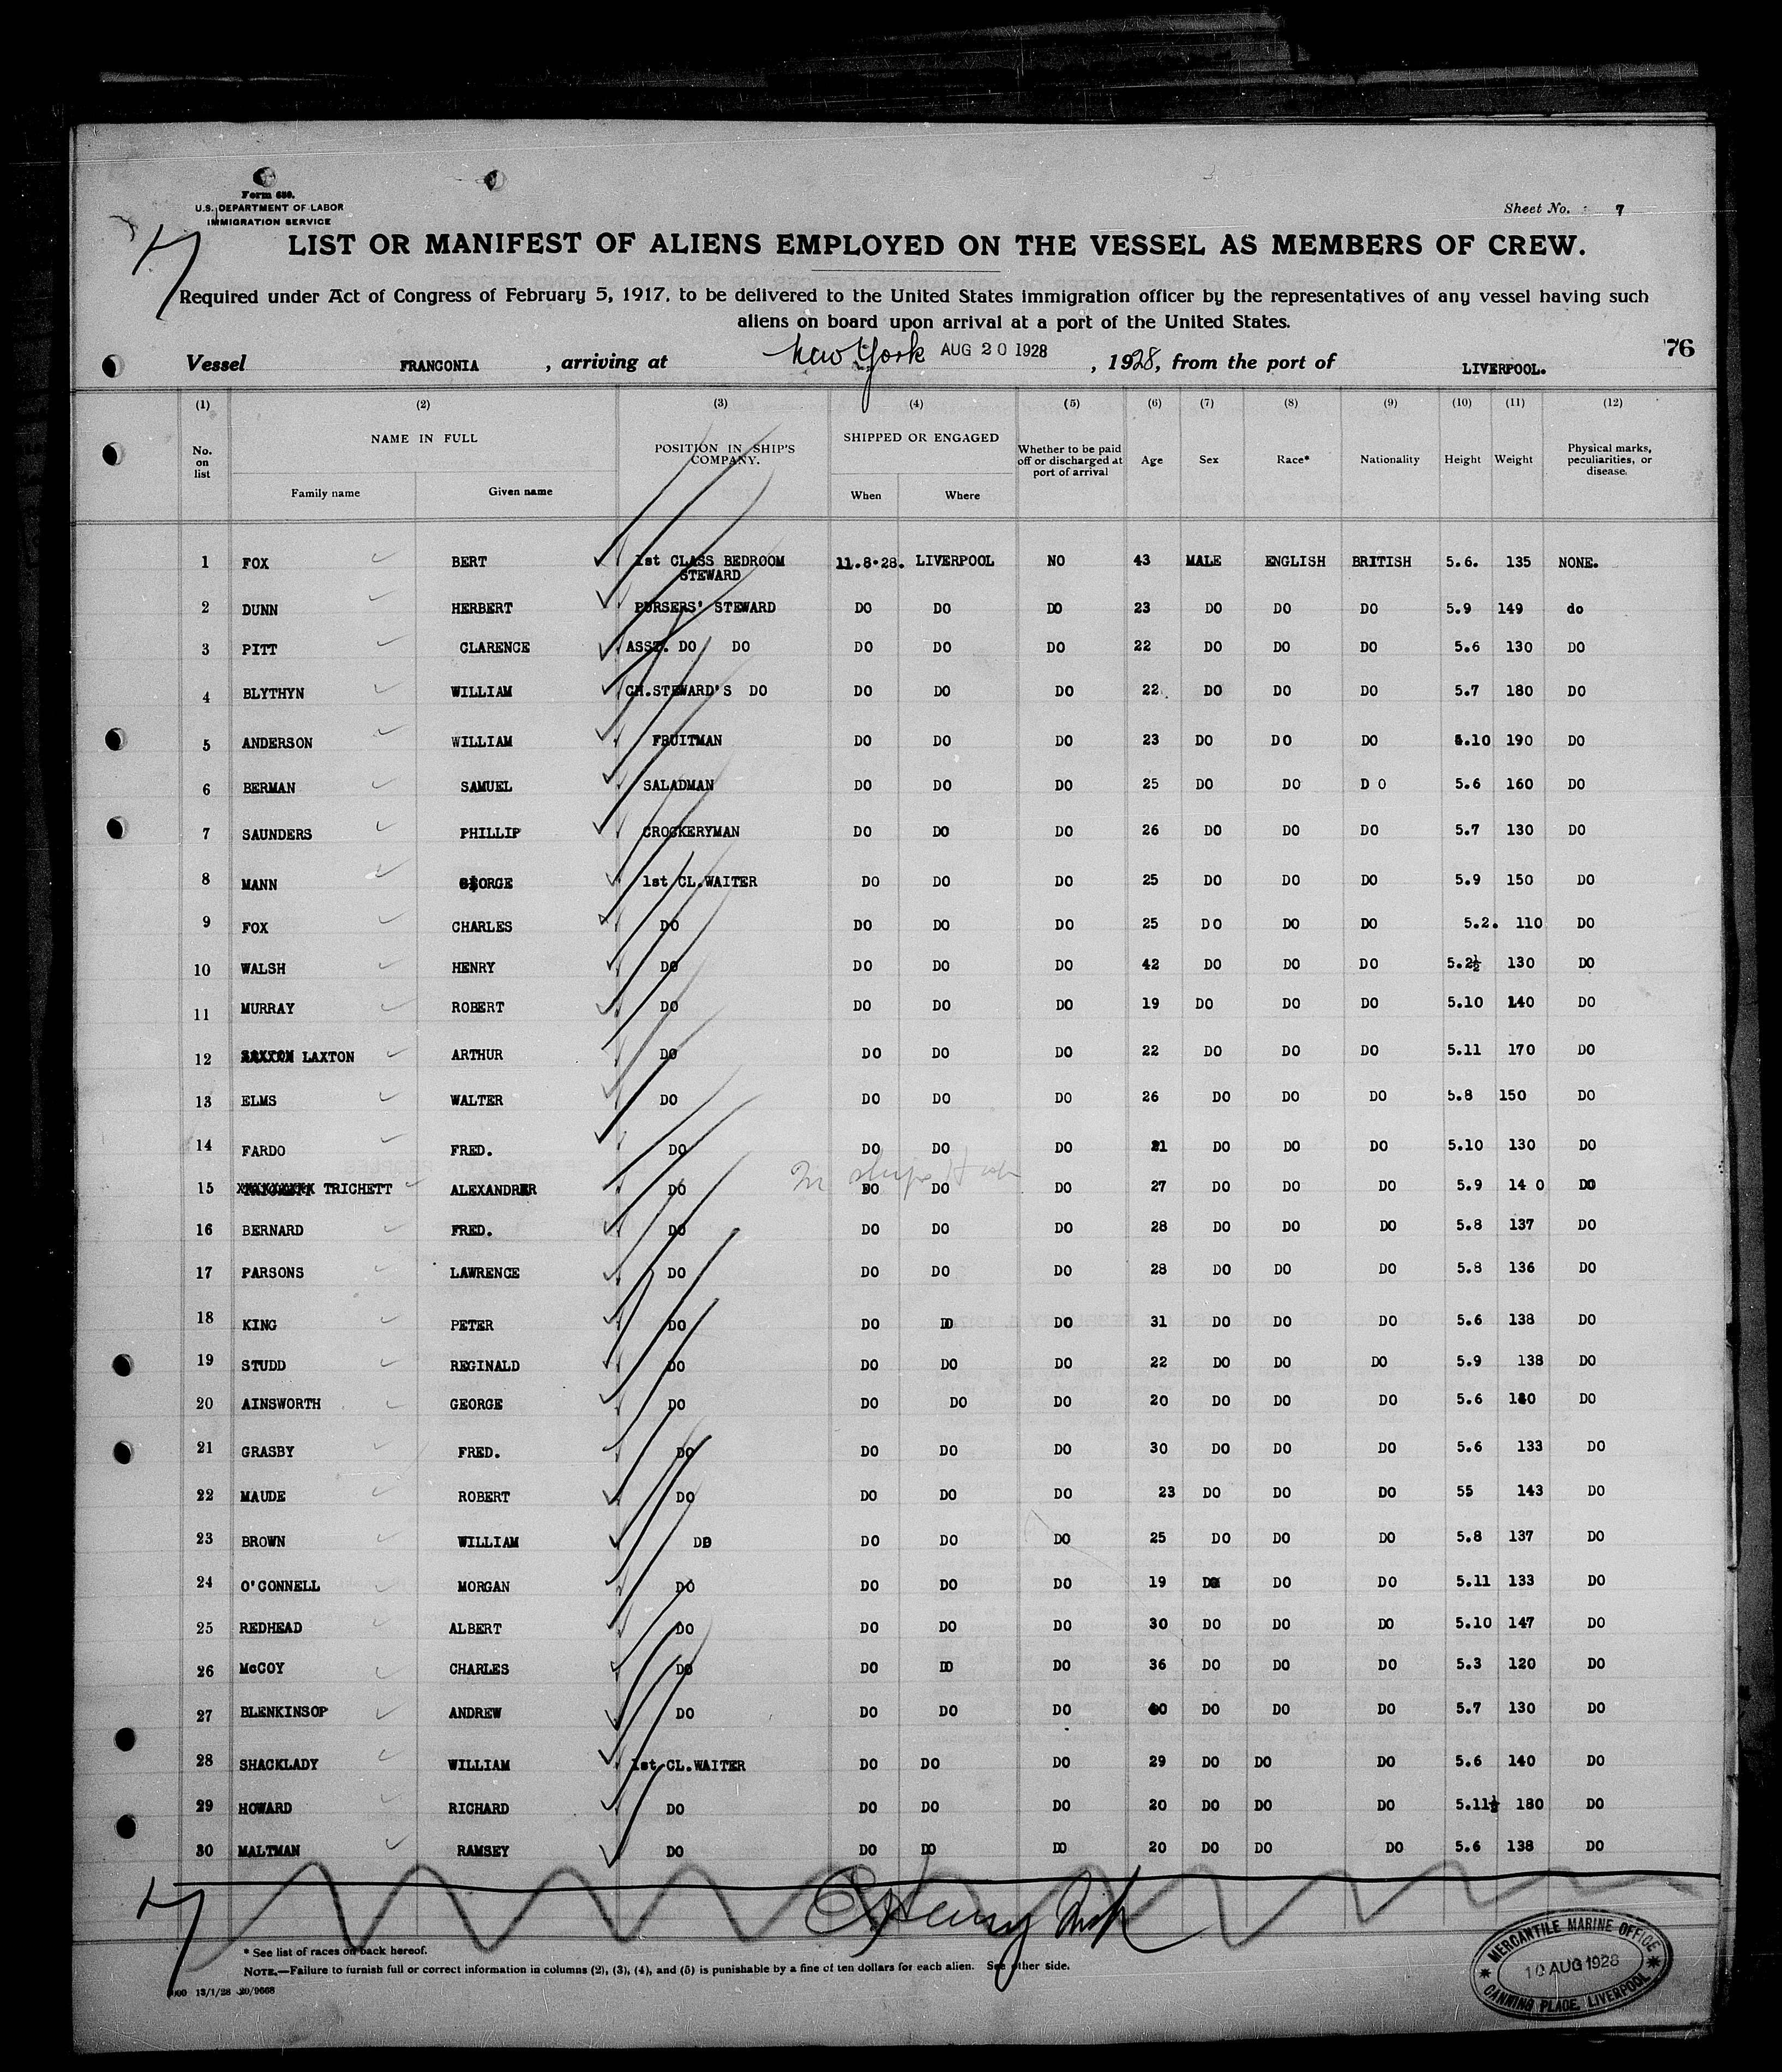 Form 689.
U.S. DEPARTMENT OF LABOR
IMMIGRATION SERVICE
Sheet No. 7
7
LIST OR MANIFEST OF ALIENS EMPLOYED ON THE VESSEL AS MEMBERS OF CREW.
Required under Act of Congress of February 5, 1917, to be delivered to the United States immigration officer by the representatives of any vessel having such
aliens on board upon arrival at a port of the United States.
76
Vessel FRANCONIA, arriving at New York AUG 20 1928, 1928, from the port of LIVERPOOL.
(1) (2) (3) (4) (5) (6) (7) (8) (9) (10) (11) (12)
No. on list NAME IN FULL Family name Given name POSITION IN SHIP'S COMPANY. SHIPPED OR ENGAGED When Where Whether to be paid off or discharged at port of arrival Age Sex Race* Nationality Height Weight Physical marks, peculiarities, or disease.
1 FOX BERT 1st CLASS BEDROOM STEWARD 11.8.28. LIVERPOOL NO 43 MALE ENGLISH BRITISH 5.6. 135 NONE.
2 DUNN HERBERT PURSERS' STEWARD DO DO DO 23 DO DO DO 5.9 149 do
3 PITT CLARENCE ASST. DO DO DO DO DO 22 DO DO DO 5.6 130 DO
4 BLYTHYN WILLIAM CH.STEWARD'S DO DO DO DO 22 DO DO DO 5.7 180 DO
5 ANDERSON WILLIAM FRUITMAN DO DO DO 23 DO DO DO 5.10 190 DO
6 BERMAN SAMUEL SALADMAN DO DO DO 25 DO DO D O 5.6 160 DO
7 SAUNDERS PHILLIP CROCKERYMAN DO DO DO 26 DO DO DO 5.7 130 DO
8 MANN GEORGE 1st CL.WAITER DO DO DO 25 DO DO DO 5.9 150 DO
9 FOX CHARLES DO DO DO DO 25 DO DO DO 5.2. 110 DO
10 WALSH HENRY DO DO DO DO 42 DO DO DO 5.2½ 130 DO
11 MURRAY ROBERT DO DO DO DO 19 DO DO DO 5.10 140 DO
12 LAXTON ARTHUR DO DO DO DO 22 DO DO DO 5.11 170 DO
13 ELMS WALTER DO DO DO DO 26 DO DO DO 5.8 150 DO
14 FARDO FRED. DO DO DO DO 21 DO DO DO 5.10 130 DO
15 TRICHETT ALEXANDER DO DO DO DO 27 DO DO DO 5.9 14 0 DO
16 BERNARD FRED. DO DO DO DO 28 DO DO DO 5.8 137 DO
17 PARSONS LAWRENCE DO DO DO DO 28 DO DO DO 5.8 136 DO
18 KING PETER DO DO DO DO 31 DO DO DO 5.6 138 DO
19 STUDD REGINALD DO DO DO DO 22 DO DO DO 5.9 138 DO
20 AINSWORTH GEORGE DO DO DO DO 20 DO DO DO 5.6 DO
21 GRASBY FRED. DO DO DO DO 30 DO DO DO 5.6 133 DO
22 MAUDE ROBERT DO DO DO DO 23 DO DO DO 55 143 DO
23 BROWN WILLIAM DO DO DO DO 25 DO DO DO 5.8 137 DO
24 O'CONNELL MORGAN DO DO DO DO 19 DO DO DO 5.11 133 DO
25 REDHEAD ALBERT DO DO DO DO 30 DO DO DO 5.10 147 DO
26 McCOY CHARLES DO DO DO DO 36 DO DO DO 5.3 120 DO
27 BLENKINSOP ANDREW DO DO DO DO DO DO DO 5.7 130 DO
28 SHACKLADY WILLIAM 1st CL.WAITER DO DO DO 29 DO DO DO 5.6 140 DO
29 HOWARD RICHARD DO DO DO DO 20 DO DO DO 5.11½ 180 DO
30 MALTMAN RAMSEY DO DO DO DO 20 DO DO DO 5.6 138 DO
7
* See list of races on back hereof.
NOTE.—Failure to furnish full or correct information in columns (2), (3), (4), and (5) is punishable by a fine of ten dollars for each alien. See other side.
13/1/28 20/9668
MERCANTILE MARINE OFFICE
10 AUG 1928
CANNING PLACE, LIVERPOOL